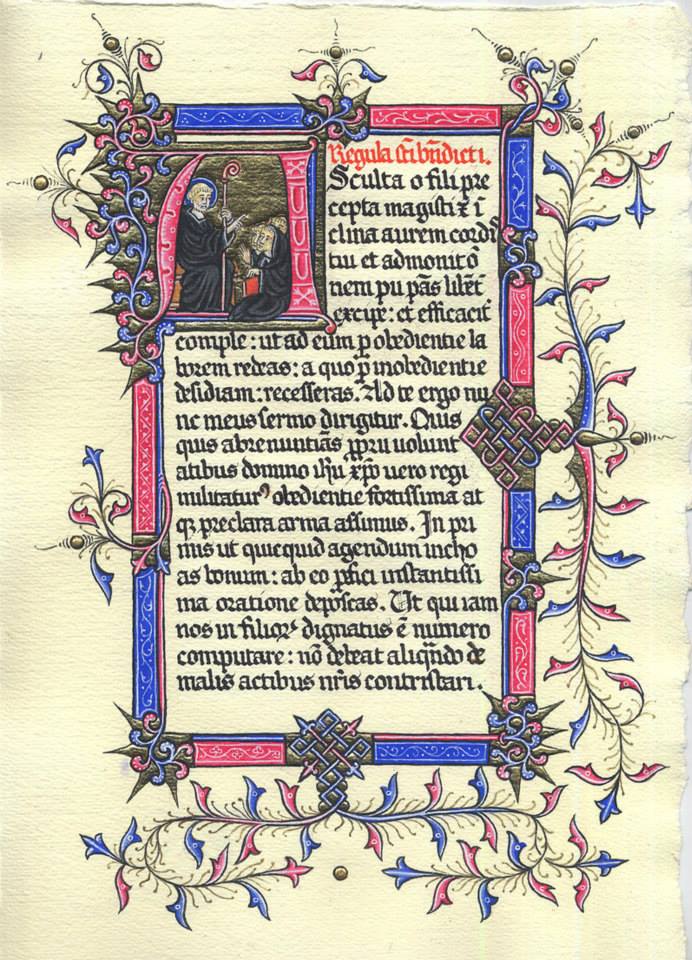 Regula sci bndicti.
Sculta o fili pre
cepta magistri et i
clina aurem cordis
tui et admonitõ
nem pii pãs libẽt
excipe: et efficacit̃
comple: ut ad eum p̱ obedientie la
borem redeas: a quo p̱ inobedientie
desidiam: recesseras. Ad te ergo nu
nc meus sermo dirigitur. Quis
quis abrenuntiãs ꝓpriis uolunt
atibus domino ihu xp̃o uero regi
militatur⁹ obedientie fortissima at
qꝫ preclara arma assimus. In pri
mis ut quicquid agendum incho
as bonum: ab eo ꝑfici instantissi
ma oratione deposcas. Ut qui iam
nos in filioꝝ dignatus ẽ numero
computare: nõ debeat aliqñdo de
malis actibus nr̃is contristari.